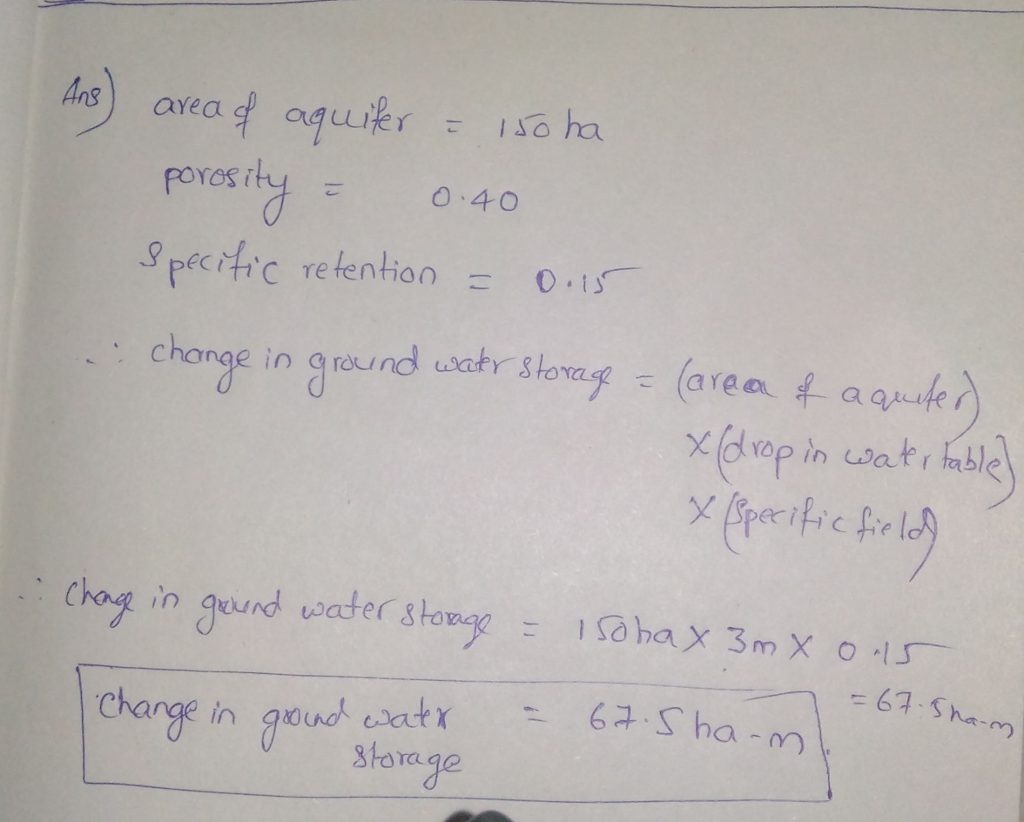 Ans) area of aquifer = 150 ha
porosity = 0.40
Specific retention = 0.15
∴ change in ground water storage = (area of aquifer)
X (drop in water table)
X (specific field)
∴ Change in ground water storage = 150ha X 3m X 0.15
= 67.5 ha-m
Change in ground water = 67.5 ha-m
storage